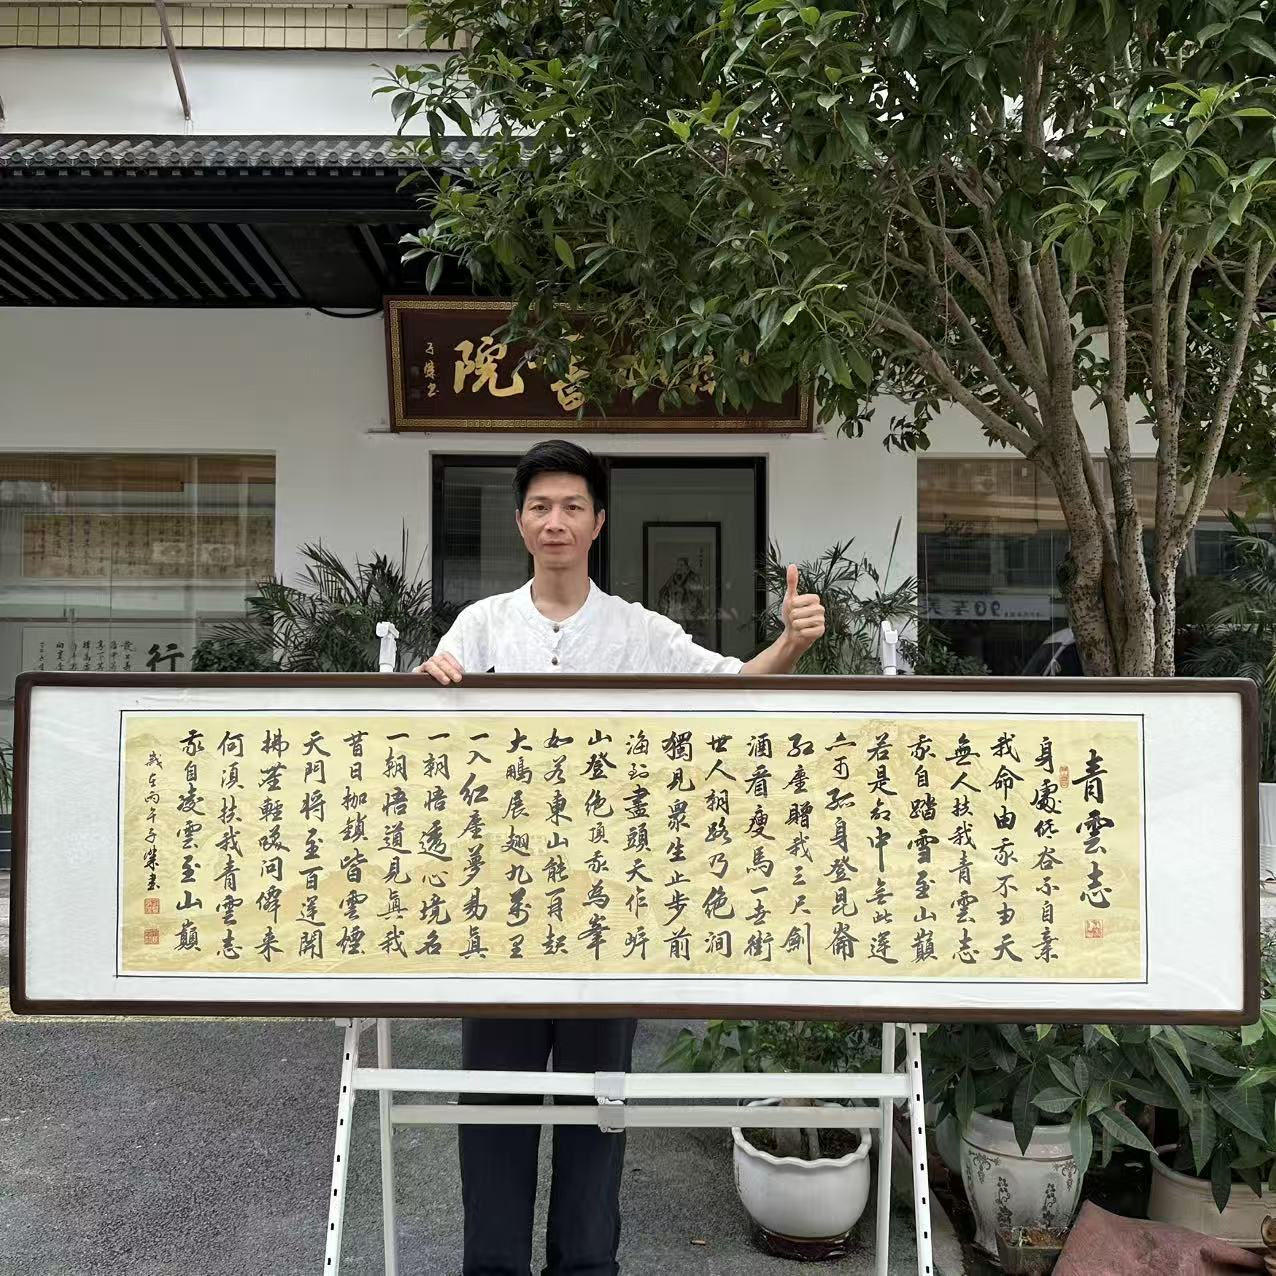 書院
青雲志
身處低谷不自棄
我命由我不由天
無人扶我青雲志
我自踏雪至山巔
若是命中無此運
亦可孤身登昆崙
紅塵贈我三尺劍
酒看瘦馬一壺街
世人朝路乃絶澗
獨見眾生止步前
海到盡頭天作岸
山登絶頂我為峯
如若東山能再起
大鵬展翅九萬里
一入紅塵夢易真
一朝悟透心境名
一朝悟道見真我
昔日枷鎖皆雲煙
天門將至百運開
拂塵輕
問僻來
何須扶我青雲志
我自凌雲至山巔
歲在丙午子榮書
行